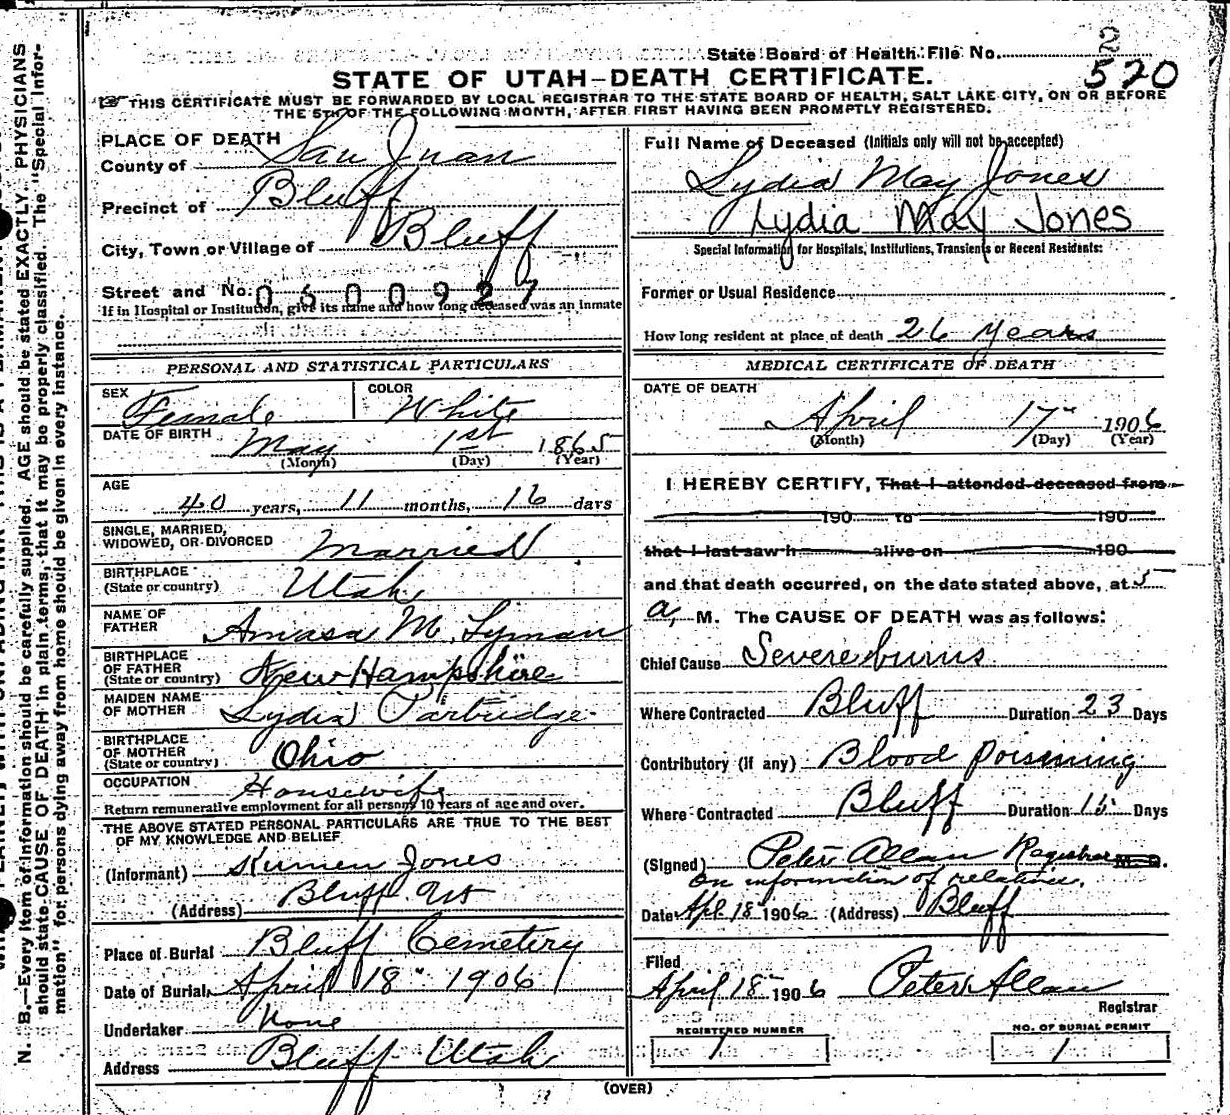 State Board of Health File No. 2
520
STATE OF UTAH—DEATH CERTIFICATE.
THIS CERTIFICATE MUST BE FORWARDED BY LOCAL REGISTRAR TO THE STATE BOARD OF HEALTH, SALT LAKE CITY, ON OR BEFORE
THE 5TH OF THE FOLLOWING MONTH, AFTER FIRST HAVING BEEN PROMPTLY REGISTERED.
PLACE OF DEATH
County of San Juan
Precinct of Bluff
City, Town or Village of Bluff
Street and No. 0600927
If in Hospital or Institution, give its name and how long deceased was an inmate
PERSONAL AND STATISTICAL PARTICULARS
SEX Female COLOR White
DATE OF BIRTH May 1st 1865
(Month) (Day) (Year)
AGE
40 years, 11 months, 16 days
SINGLE, MARRIED,
WIDOWED, OR DIVORCED Married
BIRTHPLACE
(State or country) Utah
NAME OF
FATHER Amasa M. Lyman
BIRTHPLACE
OF FATHER
(State or country) New Hampshire
MAIDEN NAME
OF MOTHER Lydia Partridge
BIRTHPLACE
OF MOTHER
(State or country) Ohio
OCCUPATION Housewife
Return remunerative employment for all persons 10 years of age and over.
THE ABOVE STATED PERSONAL PARTICULARS ARE TRUE TO THE BEST
OF MY KNOWLEDGE AND BELIEF
(Informant) Kumen Jones
(Address) Bluff Ut
Place of Burial Bluff Cemetery
Date of Burial April 18" 1906
Undertaker None
Address Bluff Utah
Full Name of Deceased (Initials only will not be accepted)
Lydia May Jones
Lydia May Jones
Special Information for Hospitals, Institutions, Transients or Recent Residents:
Former or Usual Residence
How long resident at place of death 26 years
MEDICAL CERTIFICATE OF DEATH
DATE OF DEATH
April 17" 1906
(Month) (Day) (Year)
I HEREBY CERTIFY, That I attended deceased from
190 to 190
that I last saw h alive on 190
and that death occurred, on the date stated above, at 5
a, M. The CAUSE OF DEATH was as follows:
Chief Cause Severe burns
Where Contracted Bluff Duration 23 Days
Contributory (if any) Blood poisening
Where Contracted Bluff Duration 15 Days
(Signed) Peter Allan Registrar M. D.
on information of relatives.
Date Apl 18 1906 (Address) Bluff
Filed
April 18" 1906 Peter Allan
Registrar
REGISTERED NUMBER
1
NO. OF BURIAL PERMIT
1
(OVER)
N. B.—Every item of information should be carefully supplied. AGE should be stated EXACTLY. PHYSICIANS
should state CAUSE OF DEATH in plain terms, that it may be properly classified. The "Special Infor-
mation" for persons dying away from home should be given in every instance.